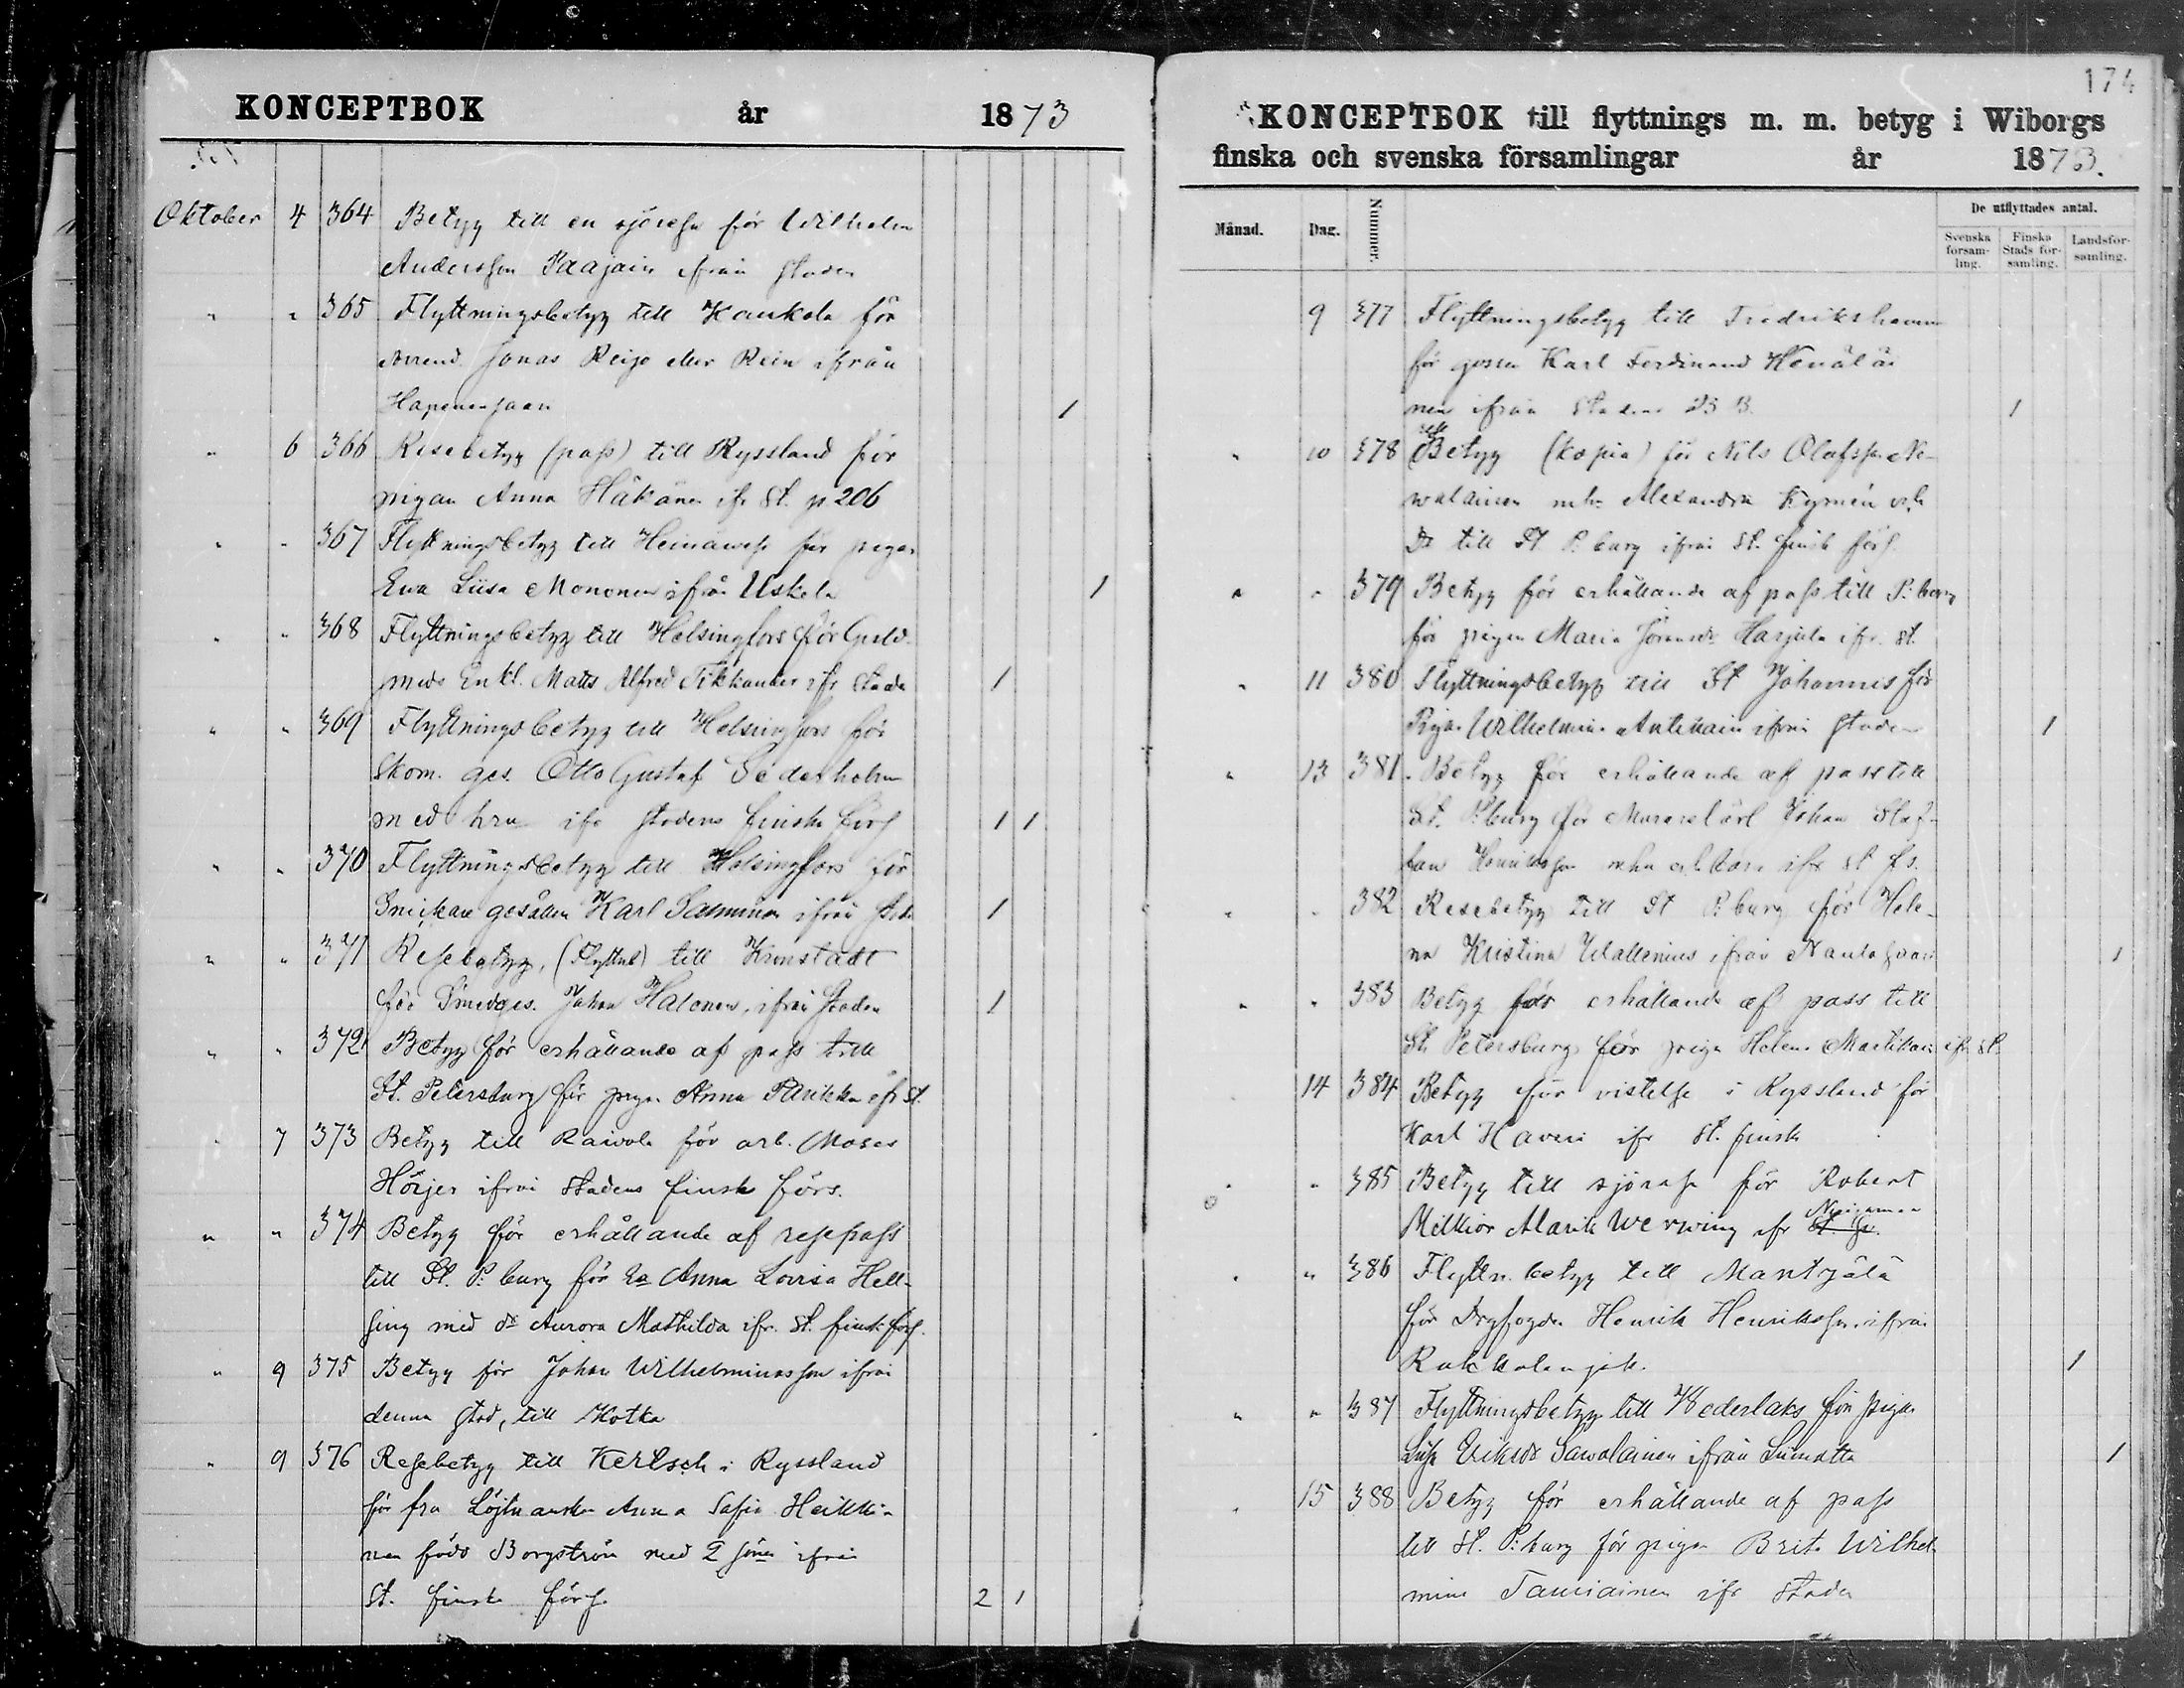 KONCEPTBOK år 1873
Oktober 4 364 Betyg till en sjöresa för Wilhelm
Andersson Paajain ifrån staden
" " 365 Flyttningsbetyg till Kaukola för
Jonas Reijo eller Rein ifrån
Hapenensaari 1
" 6 366 Resebetyg (pass) till Ryssland för
pigan Anna Häkänen ifr St. p 206
" " 367 Flyttningsbetyg till Heinäwesi för pigan
Ewa Liisa Mononen ifrån Uskela 1
" " 368 Flyttningsbetyg till Helsingfors för Guld-
smeds Enkl. Matts Alfred Tikkander ifr Staden 1
" " 369 Flyttningsbetyg till Helsingfors för
Skom. ges. Otto Gustaf Sederholm
med hru ifr stadens finska förs 1 1
" " 370 Flyttningsbetyg till Helsingfors för
Snickare gesällen Karl Salminen ifrån staden 1
" " 371 Resebetyg, (Flyttn) till Kronstadt
för Smedges. Johan Halonen, ifrån staden 1
" " 372 Betyg för erhållande af pass till
St. Petersburg för pigan Anna Parikka ifr St.
" 7 373 Betyg till Raivola för arb. Moses
Hörjer ifrån stadens finska förs.
" " 374 Betyg för erhållande af resepass
till St. P:burg för Anna Lovisa Hell-
sing med dr Aurora Mathilda ifr. St. finsk förs.
" 9 375 Betyg för Johan Wilhelminasson ifrån
denna stad, till Kotka
" 9 376 Resebetyg till Kertsch i Ryssland
för fru Löjtnantskan Anna Sofia Heikki-
nen född Borgström med 2 söner ifrån
St. finska förs. 2 1
174
KONCEPTBOK till flyttnings m. m. betyg i Wiborgs
finska och svenska församlingar år 1873.
Månad. Dag. Nummer. De utflyttades antal.
Svenska församling. Finska Stads församling. Landsförsamling.
9 377 Flyttningsbetyg till Fredrikshamn
för gossen Karl Ferdinand Henäläi
nen ifrån Stadens 1
" 10 378 Betyg (kopia) för Nils Olafsson Ne-
walainen mh Alexandra Kyrmén och
Dr till St P:burg ifrån St. finsk förs.
" " 379 Betyg för erhållande af pass till P:burg
för pigan Maria Göransdr Harjula ifr. St.
" 11 380 Flyttningsbetyg till St Johannis för
Pigan Wilhelmina Antikain ifrån staden 1
" 13 381 Betyg för erhållande af pass till
St. P:burg för Murarelärl Johan Staf-
fan Henriksson mhu och barn ifr St fs.
" " 382 Resebetyg till St P:burg för Hele-
na Kristina Wallenius ifrån Nautasaari 1
" " 383 Betyg för erhållande af pass till
St. Petersburg för pigan Helena Martikain ifr St.
" 14 384 Betyg för vistelse i Ryssland för
Karl Haveri ifr St. finsk
" " 385 Betyg till sjöresa för Robert
Milkior Alarik Werving ifr
" " 386 Flyttn. betyg till Mäntzälä
för Dryfogden Henrik Henriksson ifrån
Rakkolanjok. 1
" " 387 Flyttningsbetyg till Wederlaks för pigan
Liisa Eriksdr Sawolainen ifrån Liimatta 1
" 15 388 Betyg för erhållande af pass
till St. P:burg för pigan Brita Wilhel-
mina Tauriainen ifr staden